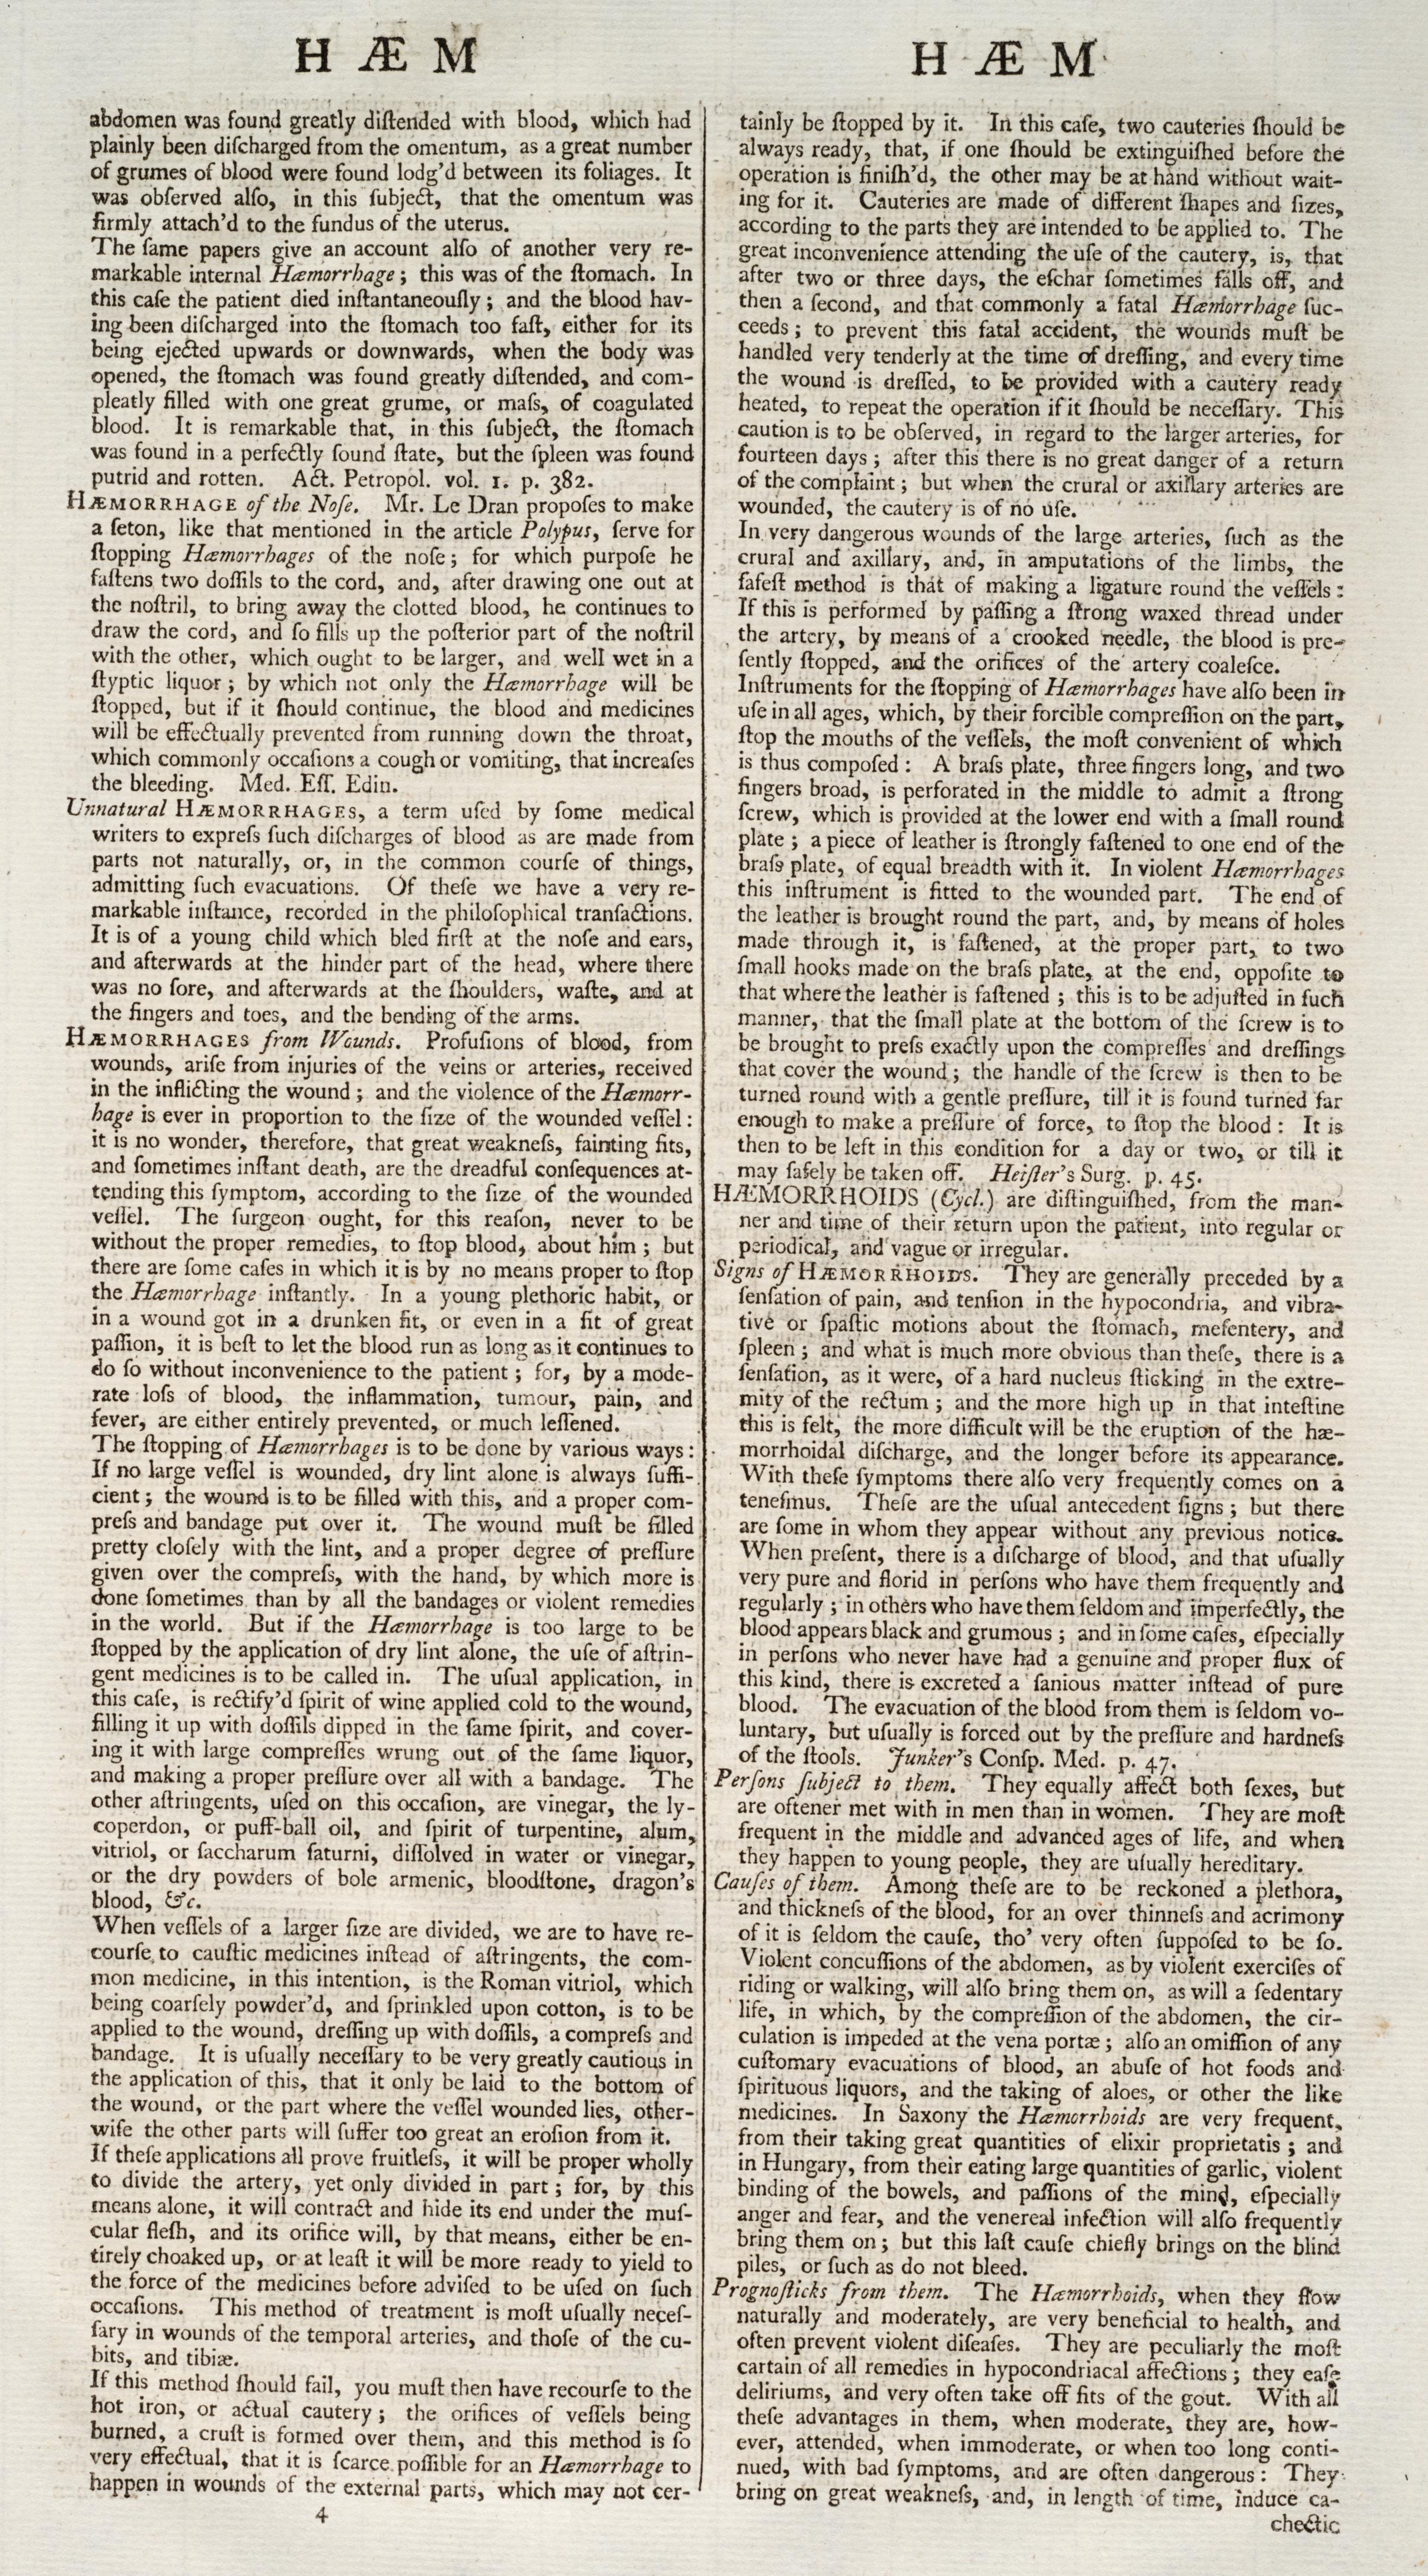 H Æ M
abdomen was found greatly diſtended with blood, which had
plainly been diſcharged from the omentum, as a great number
of grumes of blood were found lodg'd between its foliages. It
was obſerved alſo, in this ſubject, that the omentum was
firmly attach'd to the fundus of the uterus.
The ſame papers give an account alſo of another very re-
markable internal Hæmorrhage; this was of the ſtomach. In
this caſe the patient died inſtantaneouſly; and the blood hav-
ing been diſcharged into the ſtomach too faſt, either for its
being ejected upwards or downwards, when the body was
opened, the ſtomach was found greatly diſtended, and com-
pleatly filled with one great grume, or maſs, of coagulated
blood. It is remarkable that, in this ſubject, the ſtomach
was found in a perfectly ſound ſtate, but the ſpleen was found
putrid and rotten. Act. Petropol. vol. 1. p. 382.
HÆMORRHAGE of the Noſe. Mr. Le Dran propoſes to make
a ſeton, like that mentioned in the article Polypus, ſerve for
ſtopping Hæmorrhages of the noſe; for which purpoſe he
faſtens two doſſils to the cord, and, after drawing one out at
the noſtril, to bring away the clotted blood, he continues to
draw the cord, and ſo fills up the poſterior part of the noſtril
with the other, which ought to be larger, and well wet in a
ſtyptic liquor; by which not only the Hæmorrhage will be
ſtopped, but if it ſhould continue, the blood and medicines
will be effectually prevented from running down the throat,
which commonly occaſions a cough or vomiting, that increaſes
the bleeding. Med. Eſſ. Edin.
Unnatural HÆMORRHAGES, a term uſed by ſome medical
writers to expreſs ſuch diſcharges of blood as are made from
parts not naturally, or, in the common courſe of things,
admitting ſuch evacuations. Of theſe we have a very re-
markable inſtance, recorded in the philoſophical tranſactions.
It is of a young child which bled firſt at the noſe and ears,
and afterwards at the hinder part of the head, where there
was no ſore, and afterwards at the ſhoulders, waſte, and at
the fingers and toes, and the bending of the arms.
HÆMORRHAGES from Wounds. Profuſions of blood, from
wounds, ariſe from injuries of the veins or arteries, received
in the inflicting the wound; and the violence of the Hæmorr-
hage is ever in proportion to the ſize of the wounded veſſel:
it is no wonder, therefore, that great weakneſs, fainting fits,
and ſometimes inſtant death, are the dreadful conſequences at-
tending this ſymptom, according to the ſize of the wounded
veſſel. The ſurgeon ought, for this reaſon, never to be
without the proper remedies, to ſtop blood, about him; but
there are ſome caſes in which it is by no means proper to ſtop
the Hæmorrhage inſtantly. In a young plethoric habit, or
in a wound got in a drunken fit, or even in a fit of great
paſſion, it is beſt to let the blood run as long as it continues to
do ſo without inconvenience to the patient; for, by a mode-
rate loſs of blood, the inflammation, tumour, pain, and
fever, are either entirely prevented, or much leſſened.
The ſtopping of Hæmorrhages is to be done by various ways:
If no large veſſel is wounded, dry lint alone is always ſuffi-
cient; the wound is to be filled with this, and a proper com-
preſs and bandage put over it. The wound muſt be filled
pretty cloſely with the lint, and a proper degree of preſſure
given over the compreſs, with the hand, by which more is
done ſometimes than by all the bandages or violent remedies
in the world. But if the Hæmorrhage is too large to be
ſtopped by the application of dry lint alone, the uſe of aſtrin-
gent medicines is to be called in. The uſual application, in
this caſe, is rectify'd ſpirit of wine applied cold to the wound,
filling it up with doſſils dipped in the ſame ſpirit, and cover-
ing it with large compreſſes wrung out of the ſame liquor,
and making a proper preſſure over all with a bandage. The
other aſtringents, uſed on this occaſion, are vinegar, the ly-
coperdon, or puff-ball oil, and ſpirit of turpentine, alum,
vitriol, or ſaccharum ſaturni, diſſolved in water or vinegar,
or the dry powders of bole armenic, bloodſtone, dragon's
blood, &c.
When veſſels of a larger ſize are divided, we are to have re-
courſe to cauſtic medicines inſtead of aſtringents, the com-
mon medicine, in this intention, is the Roman vitriol, which
being coarſely powder'd, and ſprinkled upon cotton, is to be
applied to the wound, dreſſing up with doſſils, a compreſs and
bandage. It is uſually neceſſary to be very greatly cautious in
the application of this, that it only be laid to the bottom of
the wound, or the part where the veſſel wounded lies, other-
wiſe the other parts will ſuffer too great an eroſion from it.
If theſe applications all prove fruitleſs, it will be proper wholly
to divide the artery, yet only divided in part; for, by this
means alone, it will contract and hide its end under the muſ-
cular fleſh, and its orifice will, by that means, either be en-
tirely choaked up, or at leaſt it will be more ready to yield to
the force of the medicines before adviſed to be uſed on ſuch
occaſions. This method of treatment is moſt uſually neceſ-
ſary in wounds of the temporal arteries, and thoſe of the cu-
bits, and tibiæ.
If this method ſhould fail, you muſt then have recourſe to the
hot iron, or actual cautery; the orifices of veſſels being
burned, a cruſt is formed over them, and this method is ſo
very effectual, that it is ſcarce poſſible for an Hæmorrhage to
happen in wounds of the external parts, which may not cer-
4
H Æ M
tainly be ſtopped by it. In this caſe, two cauteries ſhould be
always ready, that, if one ſhould be extinguiſhed before the
operation is finiſh'd, the other may be at hand without wait-
ing for it. Cauteries are made of different ſhapes and ſizes,
according to the parts they are intended to be applied to. The
great inconvenience attending the uſe of the cautery, is, that
after two or three days, the eſchar ſometimes falls off, and
then a ſecond, and that commonly a fatal Hæmorrhage ſuc-
ceeds; to prevent this fatal accident, the wounds muſt be
handled very tenderly at the time of dreſſing, and every time
the wound is dreſſed, to be provided with a cautery ready
heated, to repeat the operation if it ſhould be neceſſary. This
caution is to be obſerved, in regard to the larger arteries, for
fourteen days; after this there is no great danger of a return
of the complaint; but when the crural or axillary arteries are
wounded, the cautery is of no uſe.
In very dangerous wounds of the large arteries, ſuch as the
crural and axillary, and, in amputations of the limbs, the
ſafeſt method is that of making a ligature round the veſſels:
If this is performed by paſſing a ſtrong waxed thread under
the artery, by means of a crooked needle, the blood is pre-
ſently ſtopped, and the orifices of the artery coaleſce.
Inſtruments for the ſtopping of Hæmorrhages have alſo been in
uſe in all ages, which, by their forcible compreſſion on the part,
ſtop the mouths of the veſſels, the moſt convenient of which
is thus compoſed: A braſs plate, three fingers long, and two
fingers broad, is perforated in the middle to admit a ſtrong
ſcrew, which is provided at the lower end with a ſmall round
plate; a piece of leather is ſtrongly faſtened to one end of the
braſs plate, of equal breadth with it. In violent Hæmorrhages
this inſtrument is fitted to the wounded part. The end of
the leather is brought round the part, and, by means of holes
made through it, is faſtened, at the proper part, to two
ſmall hooks made on the braſs plate, at the end, oppoſite to
that where the leather is faſtened; this is to be adjuſted in ſuch
manner, that the ſmall plate at the bottom of the ſcrew is to
be brought to preſs exactly upon the compreſſes and dreſſings
that cover the wound; the handle of the ſcrew is then to be
turned round with a gentle preſſure, till it is found turned far
enough to make a preſſure of force, to ſtop the blood: It is
then to be left in this condition for a day or two, or till it
may ſafely be taken off. Heiſter's Surg. p. 45.
HÆMORRHOIDS (Cycl.) are diſtinguiſhed, from the man-
ner and time of their return upon the patient, into regular or
periodical, and vague or irregular.
Signs of HÆMORRHOIDS. They are generally preceded by a
ſenſation of pain, and tenſion in the hypocondria, and vibra-
tive or ſpaſtic motions about the ſtomach, meſentery, and
ſpleen; and what is much more obvious than theſe, there is a
ſenſation, as it were, of a hard nucleus ſticking in the extre-
mity of the rectum; and the more high up in that inteſtine
this is felt, the more difficult will be the eruption of the hæ-
morrhoidal diſcharge, and the longer before its appearance.
With theſe ſymptoms there alſo very frequently comes on a
teneſmus. Theſe are the uſual antecedent ſigns; but there
are ſome in whom they appear without any previous notice.
When preſent, there is a diſcharge of blood, and that uſually
very pure and florid in perſons who have them frequently and
regularly; in others who have them ſeldom and imperfectly, the
blood appears black and grumous; and in ſome caſes, eſpecially
in perſons who never have had a genuine and proper flux of
this kind, there is excreted a ſanious matter inſtead of pure
blood. The evacuation of the blood from them is ſeldom vo-
luntary, but uſually is forced out by the preſſure and hardneſs
of the ſtools. Junker's Conſp. Med. p. 47.
Perſons ſubject to them. They equally affect both ſexes, but
are oftener met with in men than in women. They are moſt
frequent in the middle and advanced ages of life, and when
they happen to young people, they are uſually hereditary.
Cauſes of them. Among theſe are to be reckoned a plethora,
and thickneſs of the blood, for an over thinneſs and acrimony
of it is ſeldom the cauſe, tho' very often ſuppoſed to be ſo.
Violent concuſſions of the abdomen, as by violent exerciſes of
riding or walking, will alſo bring them on, as will a ſedentary
life, in which, by the compreſſion of the abdomen, the cir-
culation is impeded at the vena portæ; alſo an omiſſion of any
cuſtomary evacuations of blood, an abuſe of hot foods and
ſpirituous liquors, and the taking of aloes, or other the like
medicines. In Saxony the Hæmorrhoids are very frequent,
from their taking great quantities of elixir proprietatis; and
in Hungary, from their eating large quantities of garlic, violent
binding of the bowels, and paſſions of the mind, eſpecially
anger and fear, and the venereal infection will alſo frequently
bring them on; but this laſt cauſe chiefly brings on the blind
piles, or ſuch as do not bleed.
Prognoſticks from them. The Hæmorrhoids, when they flow
naturally and moderately, are very beneficial to health, and
often prevent violent diſeaſes. They are peculiarly the moſt
cartain of all remedies in hypocondriacal affections; they eaſe
deliriums, and very often take off fits of the gout. With all
theſe advantages in them, when moderate, they are, how-
ever, attended, when immoderate, or when too long conti-
nued, with bad ſymptoms, and are often dangerous: They
bring on great weakneſs, and, in length of time, induce ca-
chectic